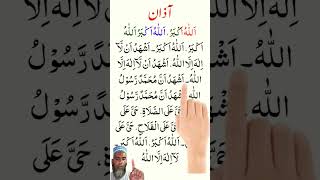 آذان
اَللهُ اَكْبَرُ، اَللهُ اَكْبَرُ اَللهُ
اَكْبَرُ، اَللهُ اَكْبَرُ۔ اَشْهَدُ اَنْ لَّآ
اِلٰهَ اِلَّا اللهُ۔ اَشْهَدُ اَنْ لَّآ اِلٰهَ اِلَّا
اللهُ۔ اَشْهَدُ اَنَّ مُحَمَّدً رَّسُوْلُ
اللهِ۔ اَشْهَدُ اَنَّ مُحَمَّدً رَّسُوْلُ
حَيَّ عَلَى الصَّلَاةِ، حَيَّ عَلَى
حَيَّ عَلَى الْفَلَاحِ، حَيَّ عَلَى
اَللهُ اَكْبَرُ، اَللهُ اَكْبَرُ۔
لَآ اِلٰهَ اِلَّا اللهُ